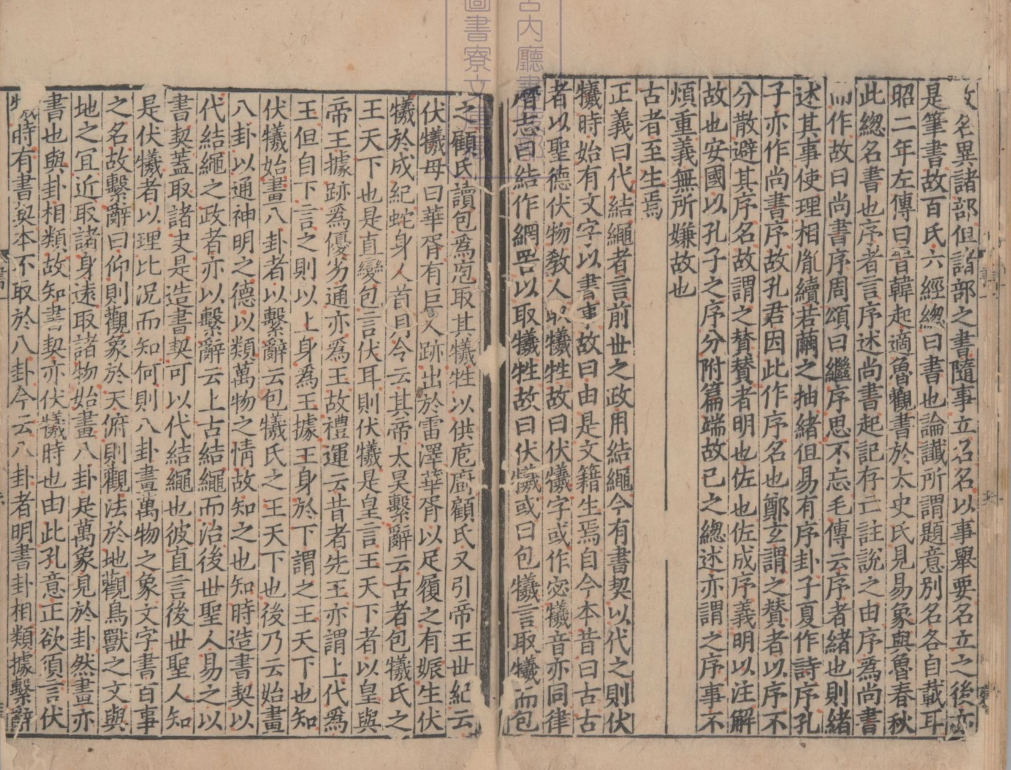 故名異諸部但諸部之書隨事立名名以事舉要名立之後亦
是筆書故百氏六經緫曰書也論讖所謂題意別名各自載耳
昭二年左傳曰晉韓起適魯觀書於太史氏見易象與魯春秋
此緫名書也序者言序述尚書起記存亡註說之由序為尚書
而作故曰尚書序周頌曰繼序思不忘毛傳云序者緒也則緒
述其事使理相胤續若繭之抽緒但易有序卦子夏作詩序孔
子亦作尚書序故孔君因此作序名也鄭玄謂之贊者以序不
分散避其序名故謂之贊贊者明也佐也佐成序義明以注解
故也安國以孔子之序分附篇端故已之緫述亦謂之序事不
煩重義無所嫌故也
古者至生焉
正義曰代結繩者言前世之政用結繩今有書契以代之則伏
犧時始有文字以書事故曰由是文籍生焉自今本昔曰古古
者以聖德伏物教人取犧牲故曰伏犧字或作宓犧音亦同律
曆志曰結作網罟以取犧牲故曰伏犧或曰包犧言取犧而包
之顧氏讀包為庖取其犧牲以供庖廚顧氏又引帝王世紀云
伏犧母曰華胥有巨人跡出於雷澤華胥以足履之有娠生伏
犧於成紀蛇身人首月令云其帝太昊繫辭云古者包犧氏之
王天下也是直變包言伏耳則伏犧是皇言王天下者以皇與
帝王據跡為優劣通亦為王故禮運云昔者先王亦謂上代為
王但自下言之則以上身為王據王身於下謂之王天下也知
伏犧始畫八卦者以繫辭云包犧氏之王天下也後乃云始畫
八卦以通神明之德以類萬物之情故知之也知時造書契以
代結繩之政者亦以繫辭云上古結繩而治後世聖人易之以
書契蓋取諸夬是造書契可以代結繩也彼直言後世聖人知
是伏犧者以理比况而知何則八卦畫萬物之象文字書百事
之名故繫辭曰仰則觀象於天俯則觀法於地觀鳥獸之文與
地之宜近取諸身遠取諸物始畫八卦是萬象見於卦然畫亦
書也與卦相類故知書契亦伏犧時也由此孔意正欲須言伏
犧時有書契本不取於八卦今云八卦者明書卦相類據繫辭
宮內廳書
圖書寮文